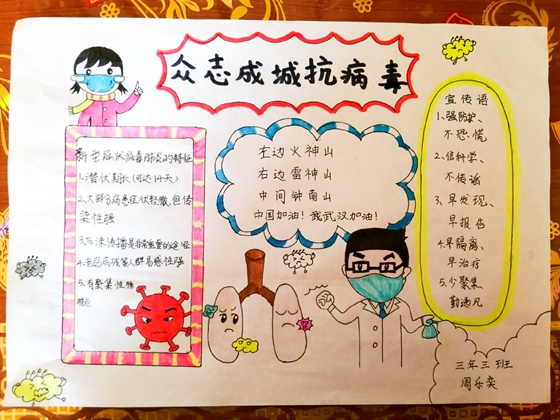 众志成城抗病毒
新型冠状病毒肺炎的特征
1.潜伏期长(可达14天)
2.大部分病患症状轻微,但传
染性强
3.飞沫传播是非常重要的途径
4.老弱病残等人群易感性强
5.有聚集性
左边火神山
右边雷神山
中间钟南山
中国加油!我武汉加油!
宣传语
1、强防护、
不恐慌
2、信科学、
不传谣
3、早发现、
早报告
4.早隔离、
早治疗
5.少聚集、
勤通风
三年三班
周乐奕